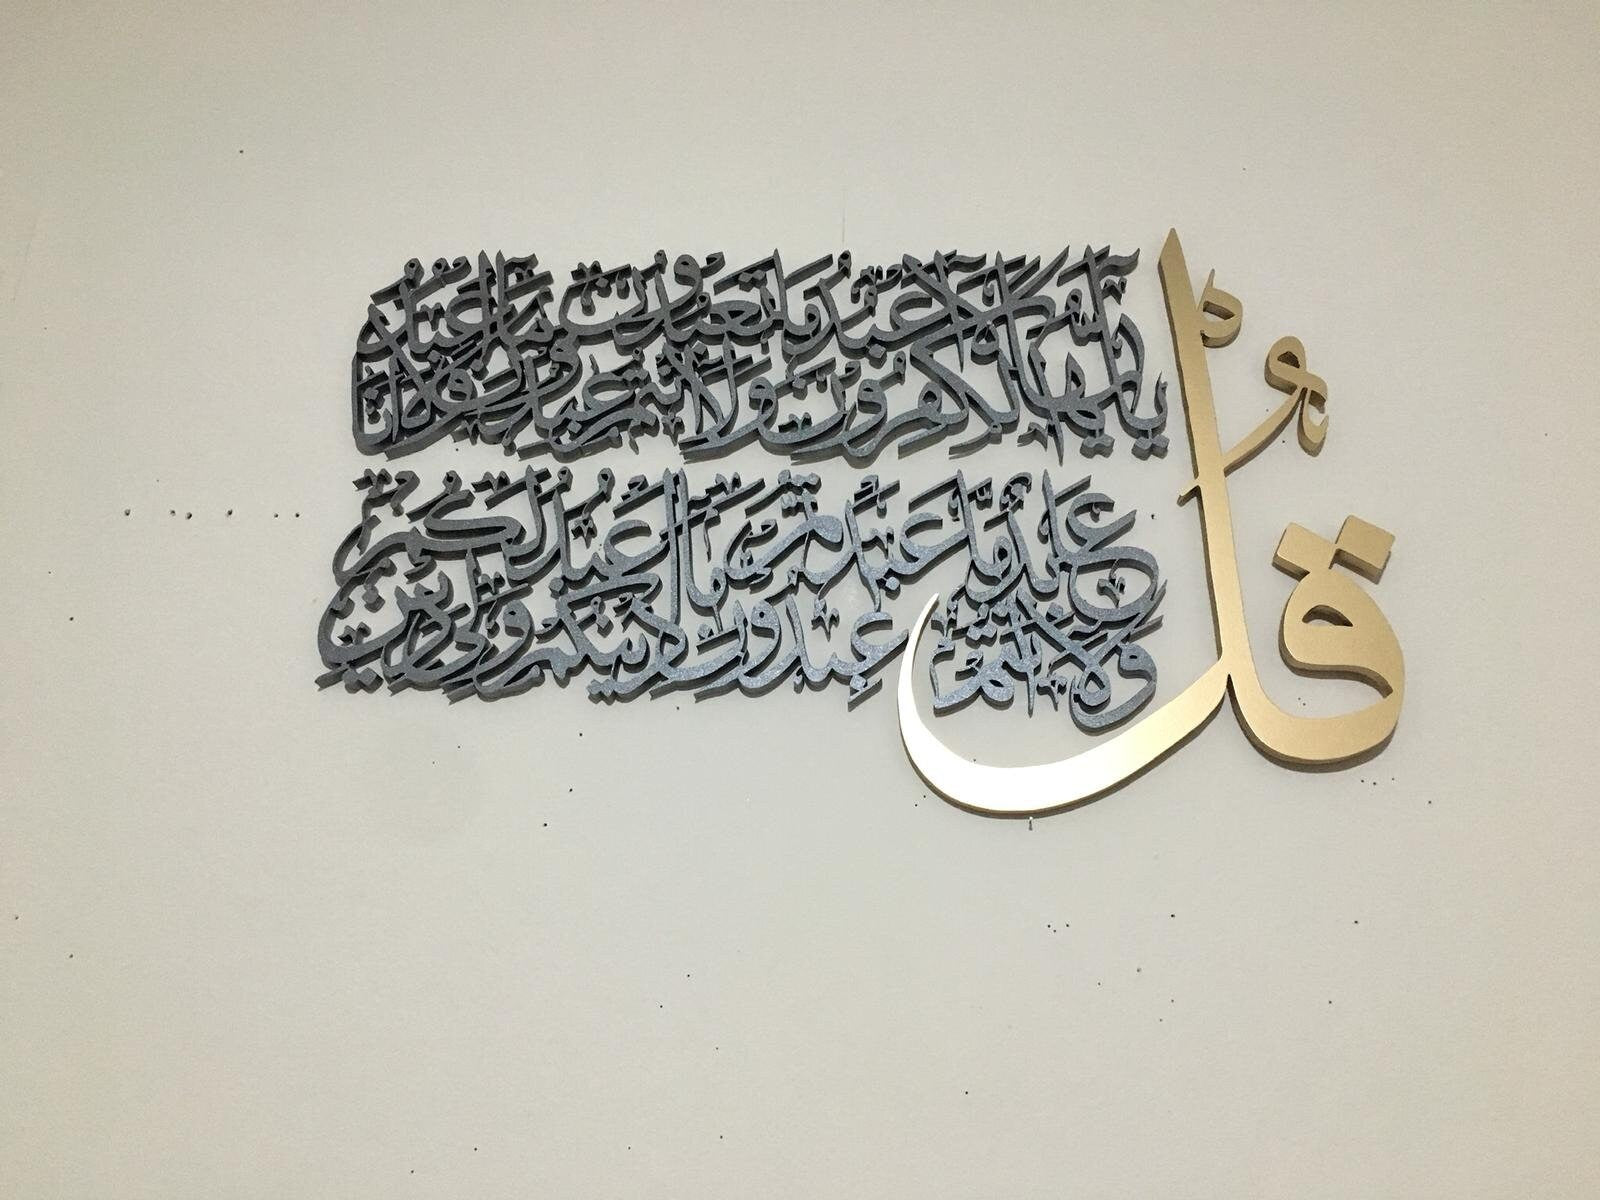 قُلْ
يَا أَيُّهَا الْكَافِرُونَ لَا أَعْبُدُ مَا تَعْبُدُونَ وَلَا أَنتُمْ عَابِدُونَ مَا أَعْبُدُ وَلَا أَنَا
عَابِدٌ مَّا عَبَدتُّمْ وَلَا أَنتُمْ عَابِدُونَ مَا أَعْبُدُ لَكُمْ دِينُكُمْ وَلِيَ دِينِ